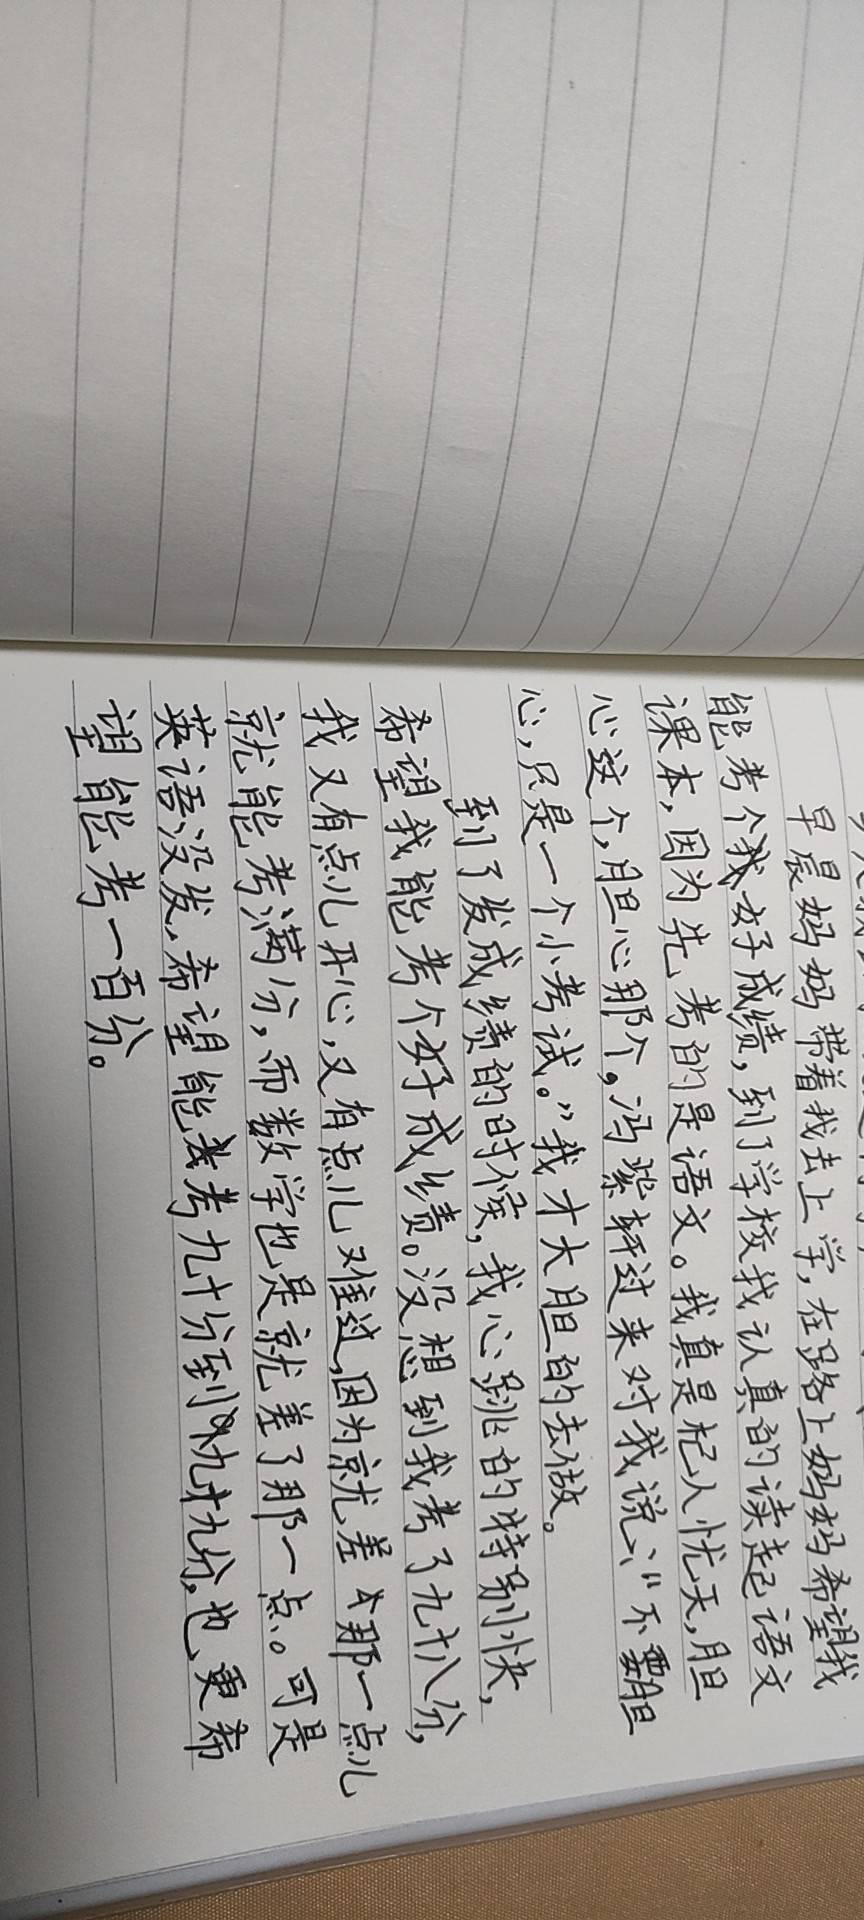 早晨妈妈带着我去上学，在路上妈妈希望我
能考个好成绩，到了学校我认真的读起语文
课本，因为先考的是语文。我真是杞人忧天，胆
心这个，胆心那个。冯紫轩过来对我说：“不要胆
心，只是一个小考试。”我才大胆的去做。
到了发成绩的时候，我心跳的特别快，
希望我能考个好成绩。没想到我考了九十八分，
我又有点儿开心，又有点儿难过，因为就差那一点儿
就能考满分，而数学也是就差了那一点。可是
英语没发，希望能考九十分到九十九分，也更希
望能考一百分。